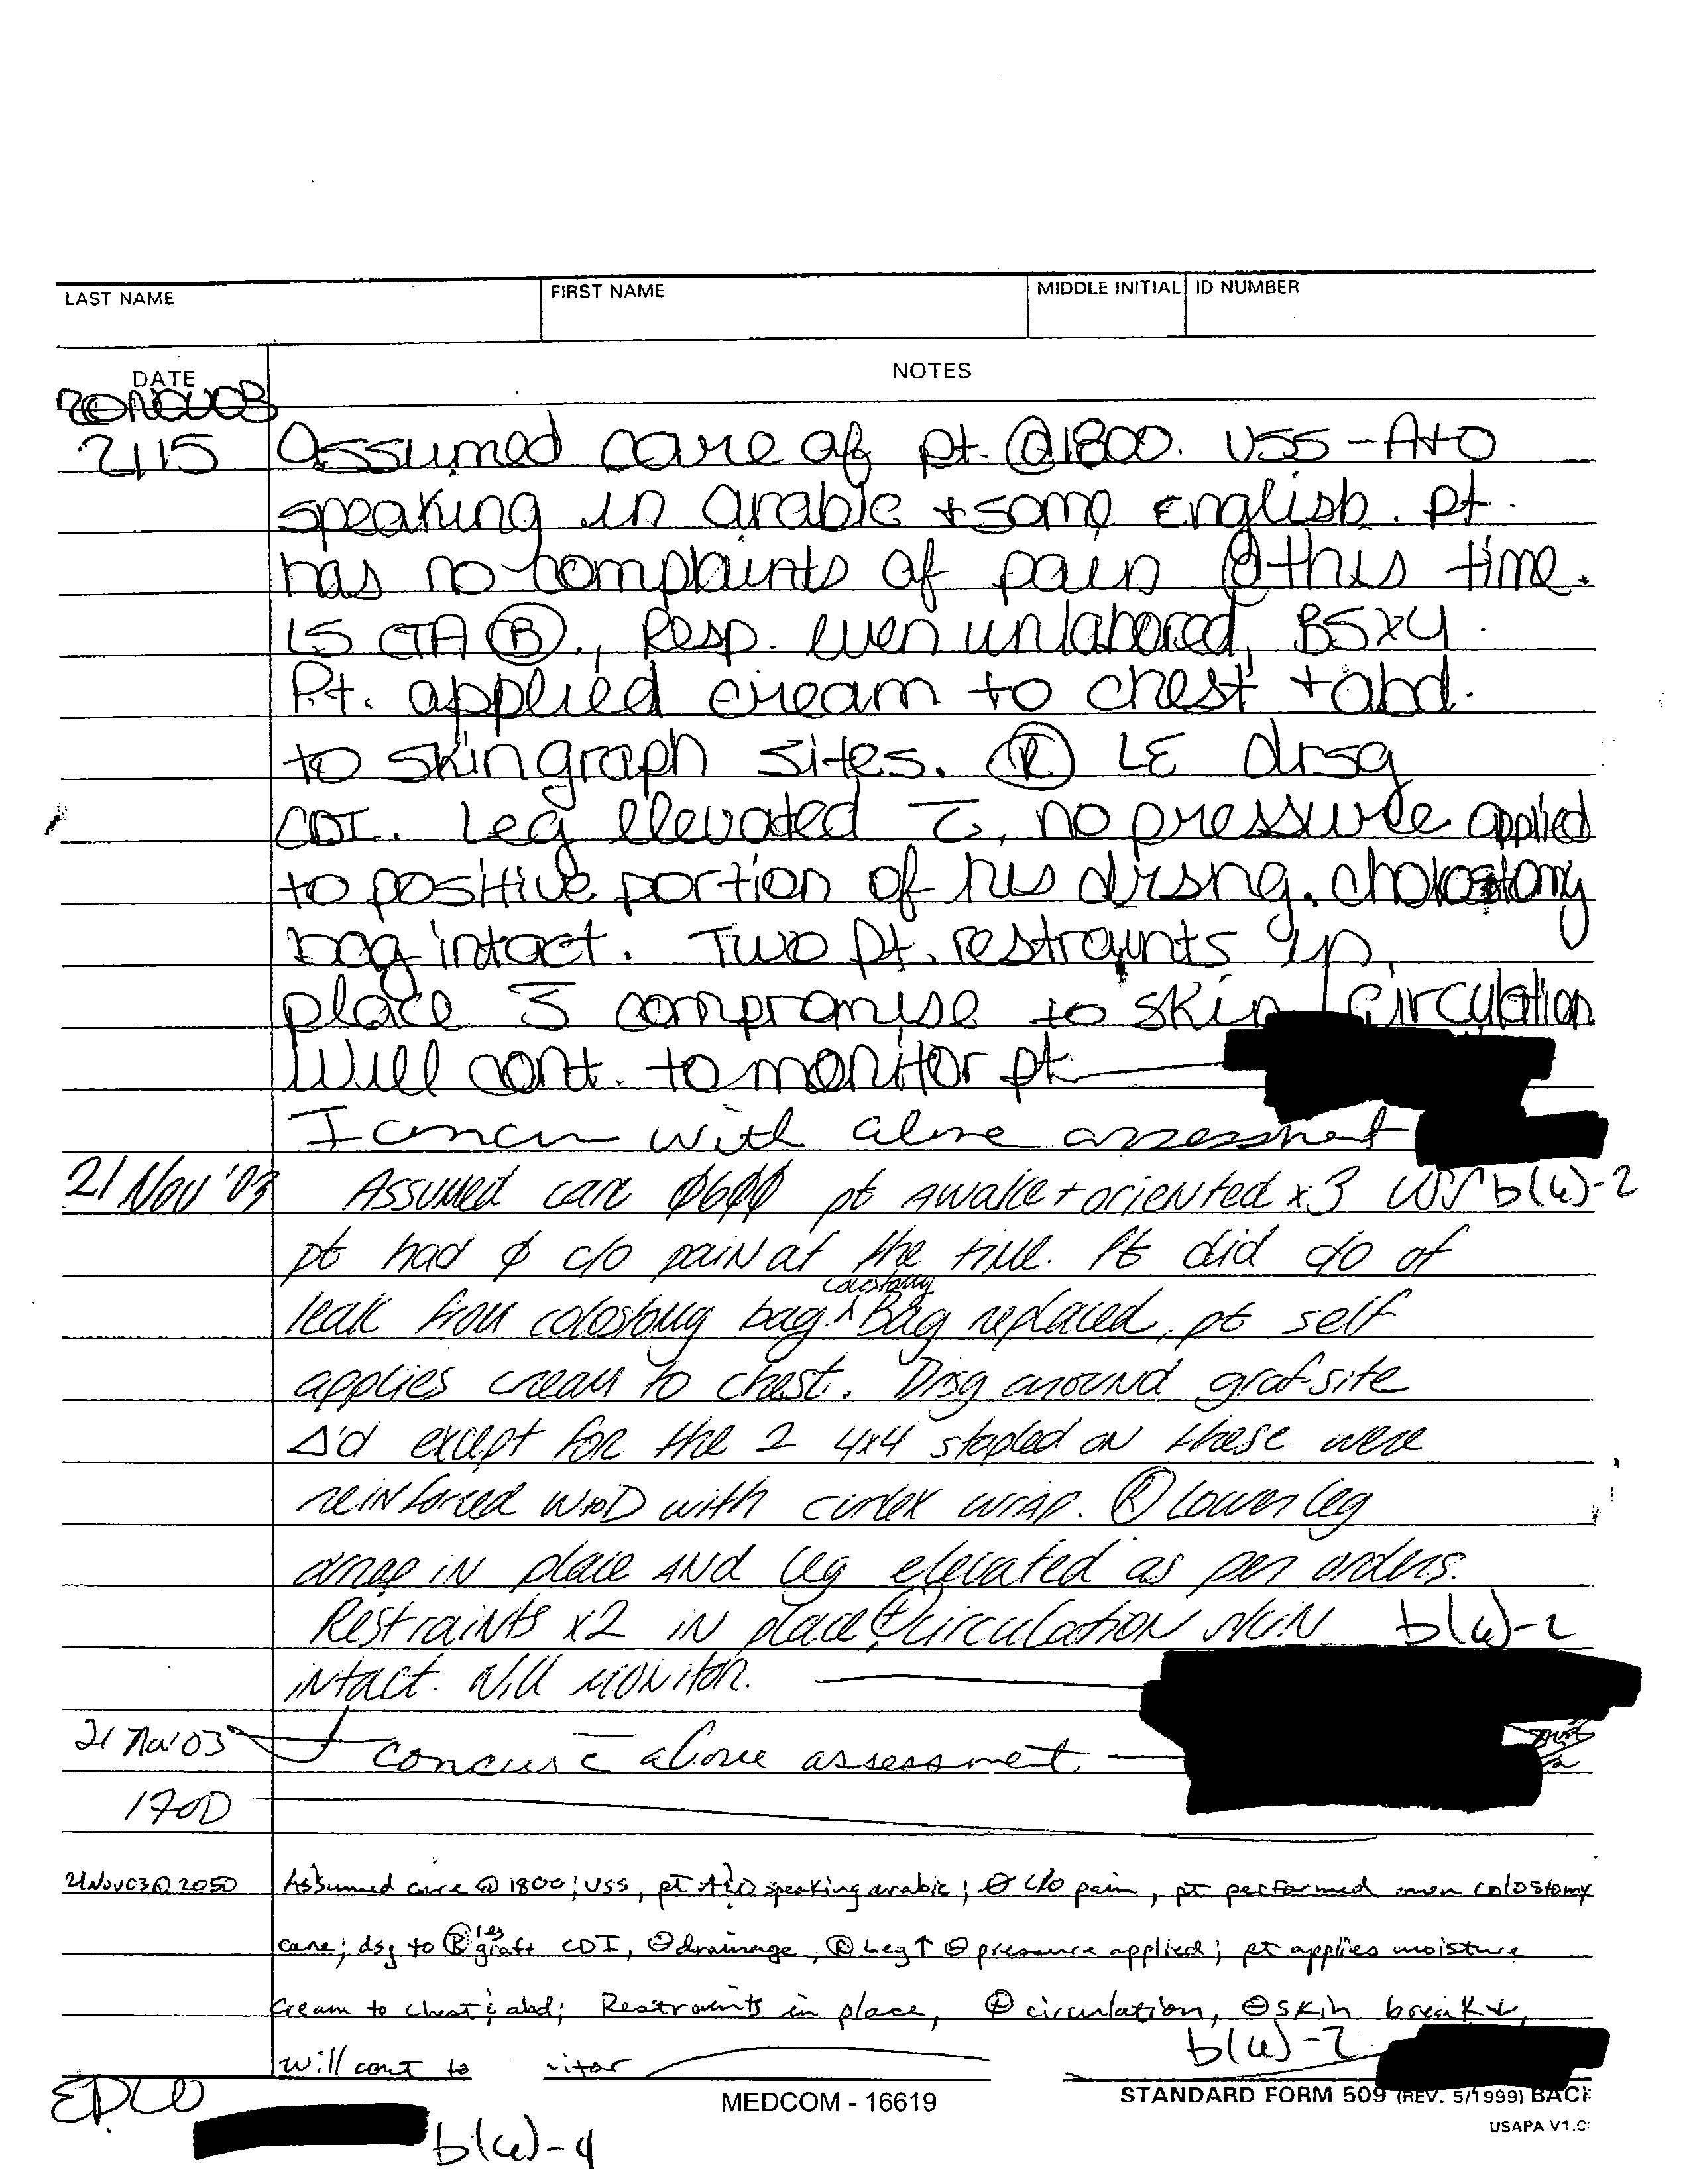 LAST NAME FIRST NAME MIDDLE INITIAL ID NUMBER
DATE NOTES
20NOV03
2115 Assumed care of pt. @1800. VSS - A+O
speaking in arabic + some english. pt.
has no complaints of pain @ this time.
LS CTA Ⓑ., Resp. even unlabored, BSx4.
Pt. applied cream to chest + abd.
to skin graph sites. Ⓡ LE drsg
CDI. Leg elevated c̄, no pressure applied
to positive portion of his drsng.
bag intact. Two pt. restraints in
place s̄ compromise to skin / circulation
Will cont. to monitor pt.
I concur with above assessment
21 Nov '03 Assumed care 0600 pt awake + oriented x3 VSS b(6)-2
pt had ∅ c/o pain at the time. Pt did c/o of
leak from colostomy bag. ^colostomy Bag replaced, pt self
applies cream to chest. Drsg around graf site
Δ'd except for the 2 4x4 stapled on these were
reinforced W→D with curlex wrap. Ⓡ Lower leg
in place and leg elevated as per orders.
Restraints x2 in place ⊕ circulation skin b(6)-2
intact. Will monitor.
21 Nov 03 I concur c̄ above assessment.
1700
21Nov03@2050 Assumed care @ 1800; VSS, pt A&O speaking arabic; ⊖ c/o pain, pt performed own colostomy
care; dsg to Ⓡ leg graft CDI, ⊖ drainage, Ⓡ Leg ↑ ⊖ pressure applied; pt applies moisture
cream to chest & abd; Restraints in place, ⊕ circulation, ⊖ skin break↓,
b(6)-2
will cont to itor
EPCO
MEDCOM - 16619
STANDARD FORM 509 (REV. 5/1999) BACK
USAPA V1.0
b(6)-4